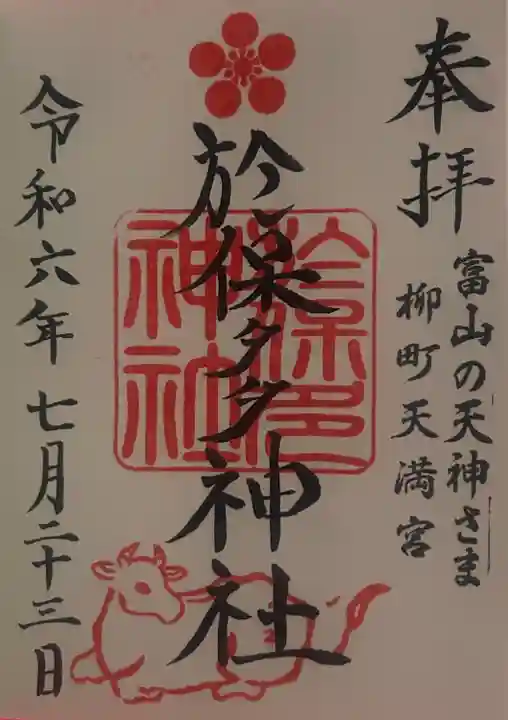 奉拝
富山の天神さま
柳町天満宮
於保多神社
於保多神社
令和六年七月二十三日